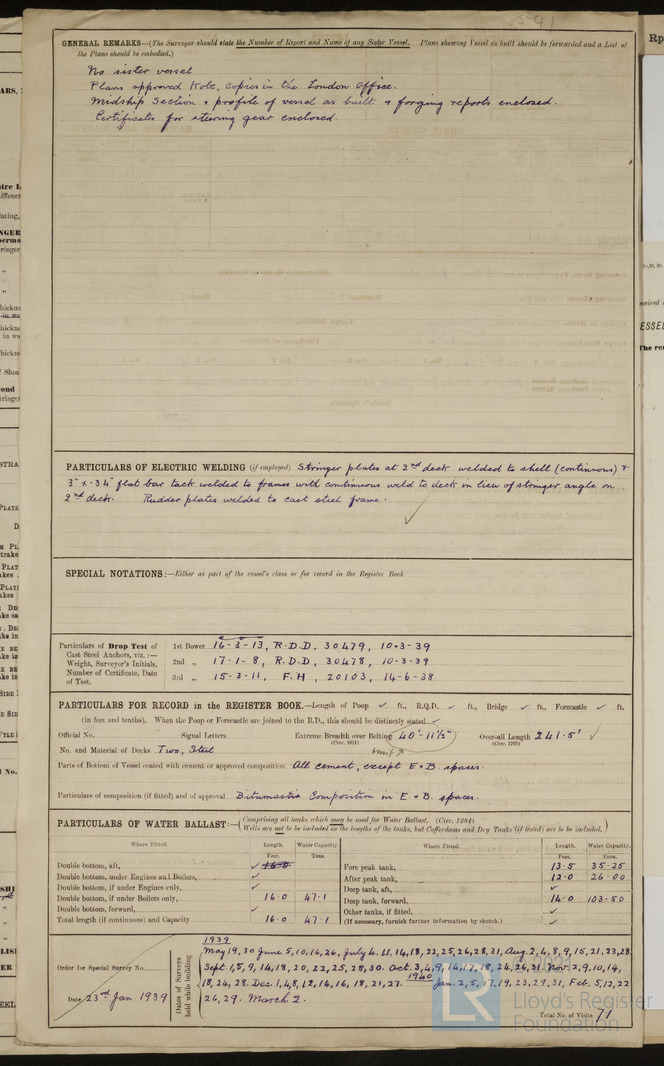 GENERAL REMARKS—(The Surveyor should state the Number of Report and Name of any Sister Vessel. Plans showing Vessel as built should be forwarded and a List of
the Plans should be embodied.)
No sister vessel
Plans approved Kobe, copies in the London Office.
Midship Section & profile of vessel as built & forging reports enclosed.
Certificates for steering gear enclosed.
PARTICULARS OF ELECTRIC WELDING (if employed) Stringer plates at 2nd deck welded to shell (continuous) &
3" x .34" flat bar tack welded to frames with continuous weld to deck in lieu of stringer angle on
2nd deck. Rudder plates welded to cast steel frame.
SPECIAL NOTATIONS:—Either as part of the vessel's class or for record in the Register Book
Particulars of Drop Test of Cast Steel Anchors, viz.:— Weight, Surveyor's Initials, Number of Certificate, Date of Test.
1st Bower 16-3-13, R.D.D, 30479, 10-3-39
2nd „ 17-1-8, R.D.D, 30478, 10-3-39
3rd „ 15-3-11, F.H, 20103, 14-6-38
PARTICULARS FOR RECORD in the REGISTER BOOK.—Length of Poop ✓ ft., R.Q.D. ✓ ft., Bridge ✓ ft., Forecastle ✓ ft.
(in feet and tenths). When the Poop or Forecastle are joined to the B.D., this should be distinctly stated ✓
Official No. Signal Letters Extreme Breadth over Belting 40'-11½" Over-all Length 241.5' ✓
(Circ. 1611) (Circ. 1703)
No. and Material of Decks Two, Steel
Parts of Bottom of Vessel coated with cement or approved composition All cement, except E & B. spaces.
Particulars of composition (if fitted) and of approval Bitumastic Composition in E & B. spaces.
PARTICULARS OF WATER BALLAST:—(Comprising all tanks which may be used for Water Ballast. (Circ. 1284)
Wells are not to be included in the lengths of the tanks, but Cofferdams and Dry Tanks (if tested) are to be included.)
Where Fitted. Length. Water Capacity. Where Fitted. Length. Water Capacity.
Feet. Tons. Feet. Tons.
Double bottom, aft, ✓ 16.0 Fore peak tank, 13.5 35.25
Double bottom, under Engines and Boilers, ✓ After peak tank, 12.0 26.00
Double bottom, if under Engines only, ✓ Deep tank, aft, ✓
Double bottom, if under Boilers only, 16.0 47.1 Deep tank, forward, 14.0 103.50
Double bottom, forward, ✓ Other tanks, if fitted, ✓
Total length (if continuous) and Capacity 16.0 47.1 (If necessary, furnish further information by sketch.) ✓
Order for Special Survey No.
Date 23rd Jan. 1939
Dates of Surveys held while building
1939
May 19, 30 June 5, 10, 16, 26, July 4, 11, 14, 18, 22, 25, 26, 28, 31, Aug. 2, 4, 8, 9, 15, 21, 23, 28.
Sept. 1, 5, 9, 14, 18, 20, 22, 25, 28, 30. Oct. 3, 4, 9, 14, 17, 18, 24, 26, 31 Nov. 2, 9, 10, 14,
18, 24, 28. Dec. 1, 4, 8, 12, 14, 16, 18, 21, 27. 1940 Jan. 2, 5, 17, 19, 23, 29, 31, Feb. 5, 12, 22
26, 29. March 2.
Total No. of Visits 71
LR
Lloyd's Register
Foundation